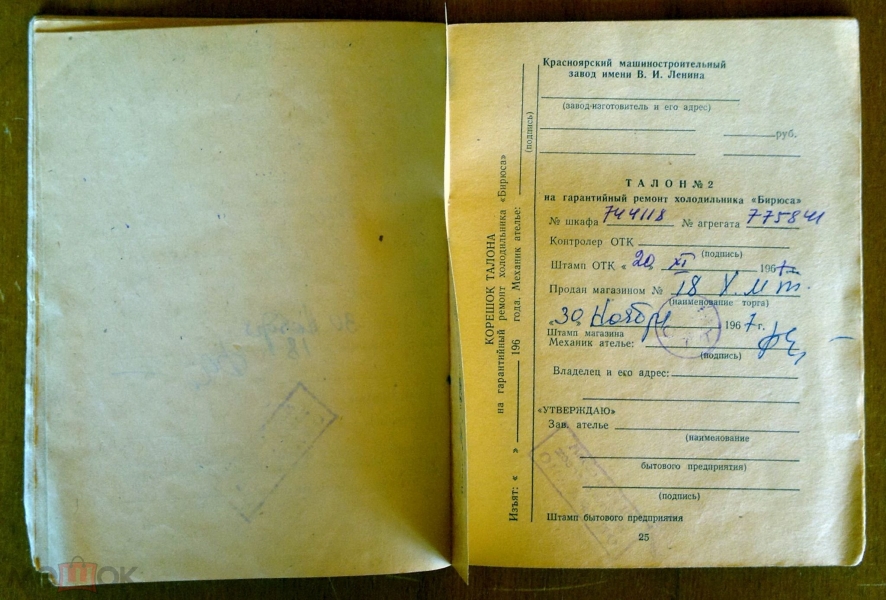 КОРЕШОК ТАЛОНА
на гарантийный ремонт холодильника «Бирюса»
Изъят: « » 196 года. Механик ателье:
(подпись)
Красноярский машиностроительный
завод имени В. И. Ленина
(завод-изготовитель и его адрес)
руб.
ТАЛОН № 2
на гарантийный ремонт холодильника «Бирюса»
№ шкафа 744118 № агрегата 775841
Контролер ОТК
(подпись)
Штамп ОТК « 20 XI 1967
Продан магазином № 18
(наименование торга)
30 Ноября 1967 г.
Штамп магазина
Механик ателье:
(подпись)
Владелец и его адрес:
«УТВЕРЖДАЮ»
Зав. ателье
(наименование
бытового предприятия)
(подпись)
Штамп бытового предприятия
25